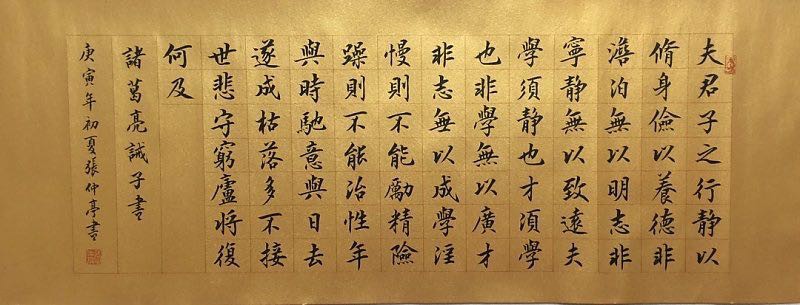 夫君子之行静以
脩身儉以養德非
澹泊無以明志非
寧静無以致遠夫
學須静也才須學
也非學無以廣才
非志無以成學淫
慢則不能勵精險
躁則不能治性年
與時馳意與日去
遂成枯落多不接
世悲守窮廬將復
何及
諸葛亮誡子書
庚寅年初夏張仲亭書